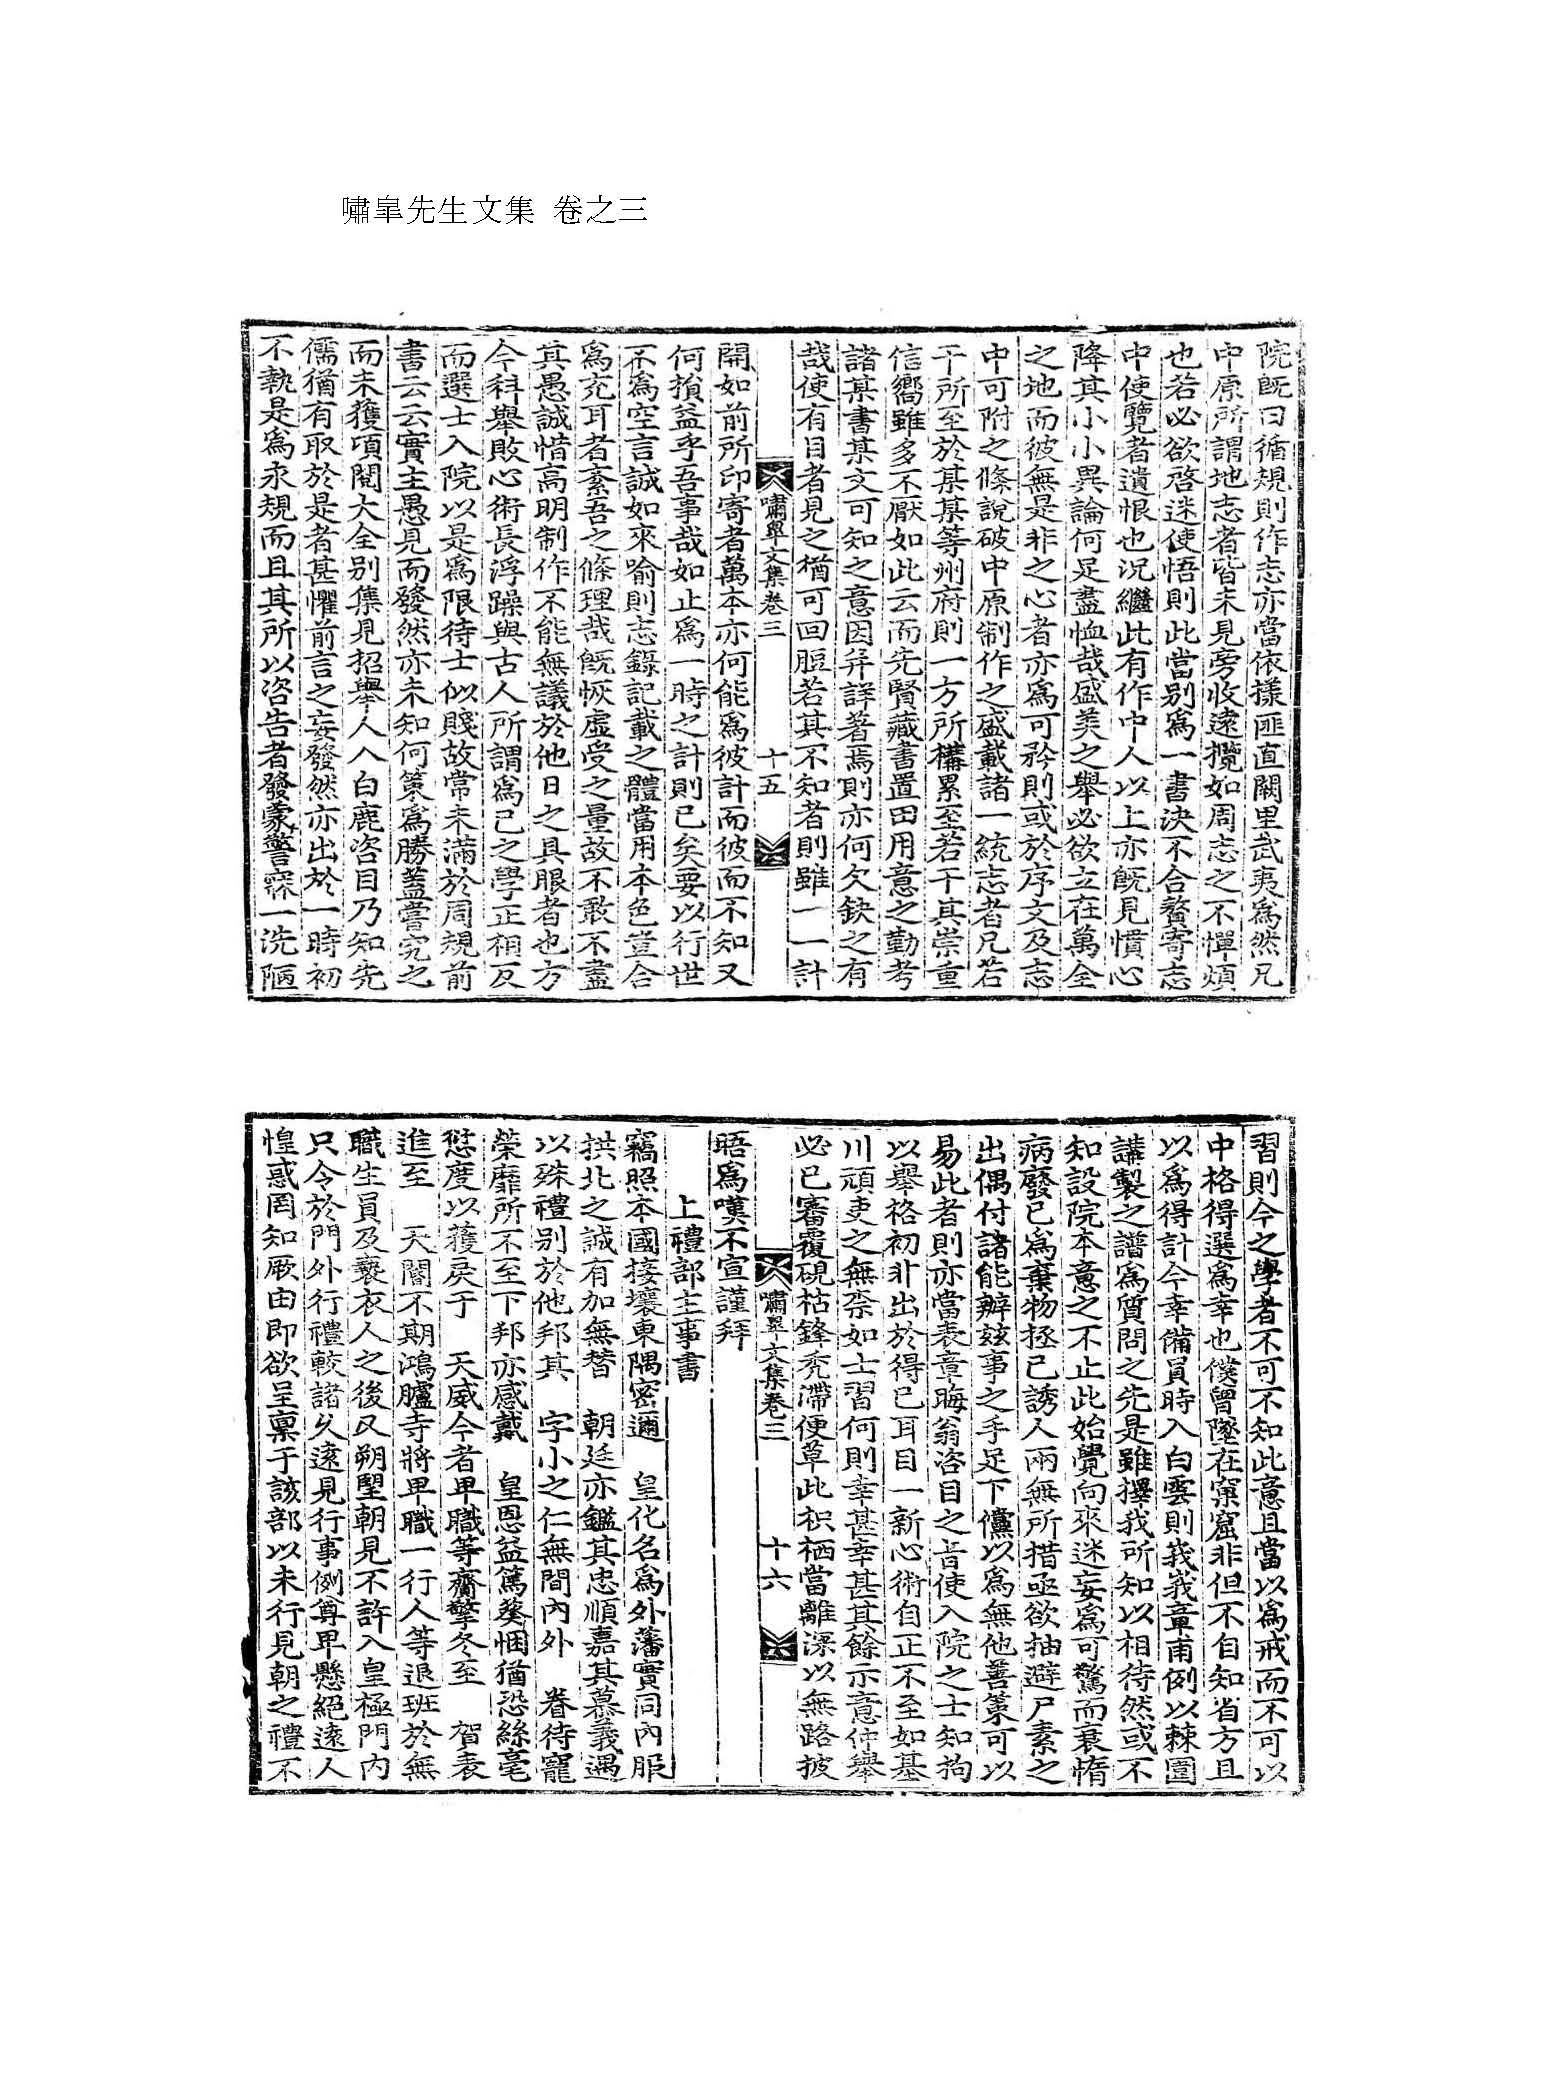 嘯皐先生文集 卷之三
院旣曰循規則作志亦當依樣匪直闕里武夷爲然凡
中原所謂地志者皆未見旁收遠攬如周志之不憚煩
也若必欲啓迷使悟則此當別爲一書決不合贅寄志
中使覽者遺恨也况繼此有作中人以上亦旣見憤心
降其小小異論何足盡恤哉盛美之擧必欲立在萬全
之地而彼無是非之心者亦爲可矜則或於序文及志
中可附之條說破中原制作之盛載諸一統志者凡若
干所至於某某等州府則一方所構累至若干其崇重
信嚮雖多不厭如此云而先賢藏書置田用意之勤考
諸某書某文可知之意因幷詳著焉則亦何欠缺之有
哉使有目者見之猶可回脰若其不知者則雖一一計
嘯皐文集卷三 十五
開如前所印寄者萬本亦何能爲彼計而彼而不知又
何損益乎吾事哉如止爲一時之計則已矣要以行世
不爲空言誠如來喩則志錄記載之體當用本色豈合
爲充耳者紊吾之條理哉旣恢虛受之量故不敢不盡
其愚誠惜高明制作不能無議於他日之具眼者也方
今科擧敗心術長浮躁與古人所謂爲己之學正相反
而選士入院以是爲限待士似賤故常未滿於周規前
書云云實主愚見而發然亦未知何策爲勝蓋嘗究之
而未獲項閱大全別集見招擧人入白鹿咨目乃知先
儒猶有取於是者甚懼前言之妄發然亦出於一時初
不執是爲永規而且其所以咨告者發蒙警寐一洗陋
習則今之學者不可不知此意且當以爲戒而不可以
中格得選爲幸也僕曾墜在窠窟非但不自知省方且
以爲得計今幸備員時入白雲則莪莪章甫例以棘圍
講製之譜爲質問之先是雖擇我所知以相待然或不
知設院本意之不止此始覺向來迷妄爲可驚而衰惰
病廢已爲棄物拯己誘人兩無所措亟欲抽避尸素之
出偶付諸能辨玆事之手足下儻以爲無他善策可以
易此者則亦當表章晦翁咨目之旨使入院之士知拘
以擧格初非出於得已耳目一新心術自正不至如基
川頑吏之無柰如士習何則幸甚幸甚其餘示意仲擧
必已審覆硯枯鋒禿滯便草此枳栖當離深以無路披
嘯皐文集卷三 十六
晤爲嘆不宣謹拜
上禮部主事書
竊照本國接壤東隅密邇 皇化名爲外藩實同內服
拱北之誠有加無替 朝廷亦鑑其忠順嘉其慕義遇
以殊禮別於他邦其 字小之仁無間內外 眷待寵
榮靡所不至下邦亦感戴 皇恩益篤葵悃猶恐絲毫
愆度以獲戾于 天威今者卑職等齎擎冬至 賀表
進至 天闇不期鴻臚寺將卑職一行人等退班於無
職生員及褻衣人之後又朔朢朝見不許入皇極門內
只令於門外行禮較諸久遠見行事例尊卑懸絕遠人
惶惑罔知厥由即欲呈稟于該部以未行見朝之禮不